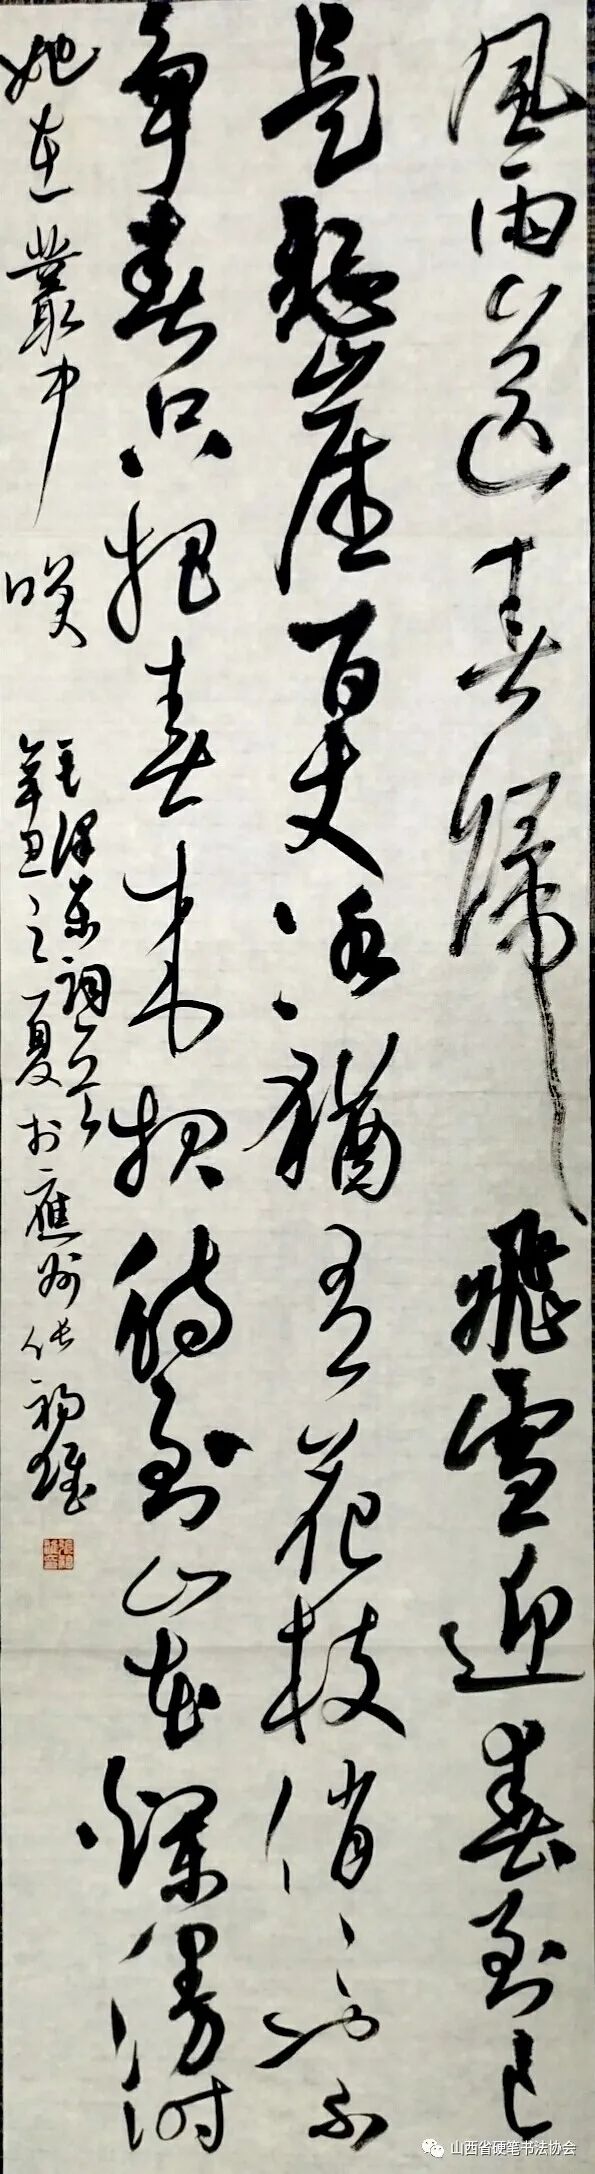 風雨送春歸飛雪迎春到已
是懸崖百丈冰猶有花枝俏〻也不
爭春只把春來報待到山花爛漫時
她在叢中咲
毛澤東詞一首
辛丑之夏於應州張福雄
山西省硬笔书法协会